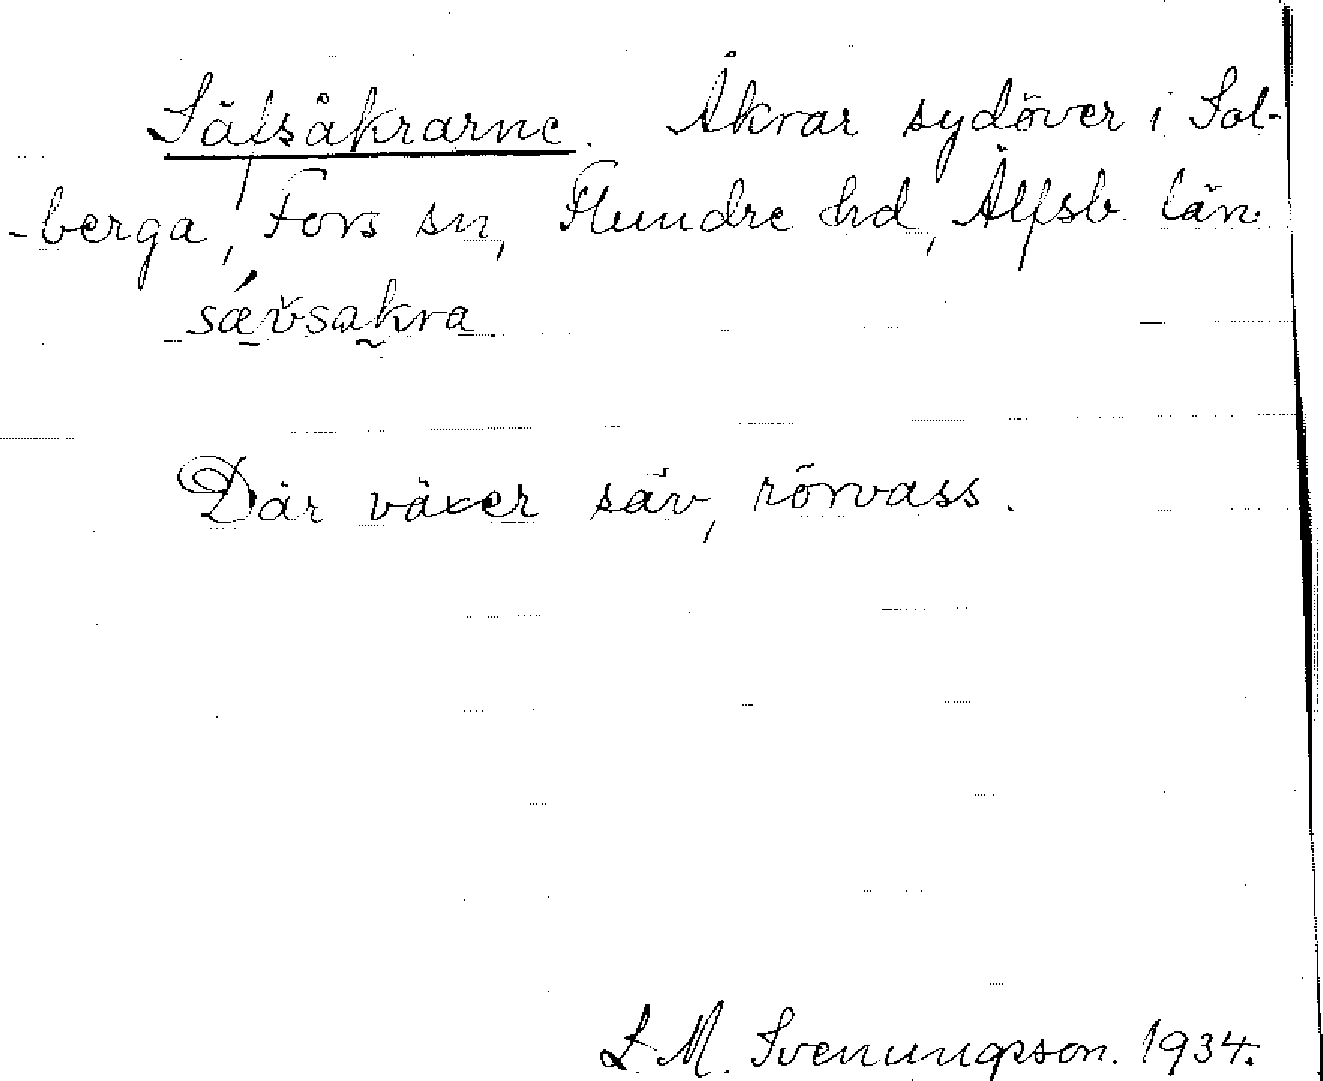 Säfsåkrarne. Åkrar sydöver i Sol-
-berga, Fors sn, Flundre hd, Älfsb. län.
sǽvsakra
Där växer säv, rörvass.
L. M. Svenungsson. 1934.